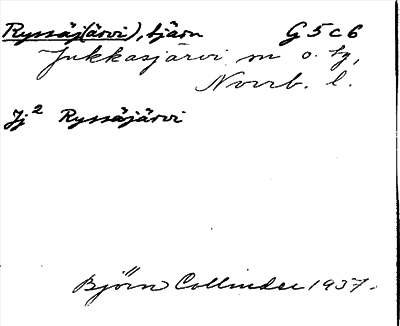 Ryssäj(ärvi), tjärn G5c6
Jukkasjärvi sn o. tg,
Norrb. l.
Jj² Ryssäjärvi
Björn Collinder 1937.